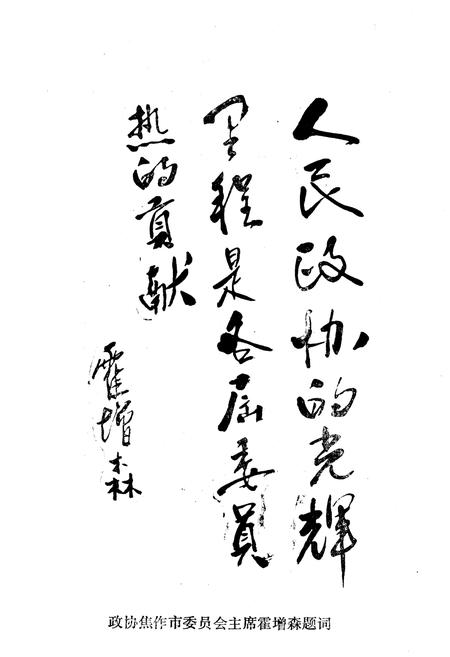 人民政协的光辉
里程是各届委员
热的贡献
霍增森
政协焦作市委员会主席霍增森题词